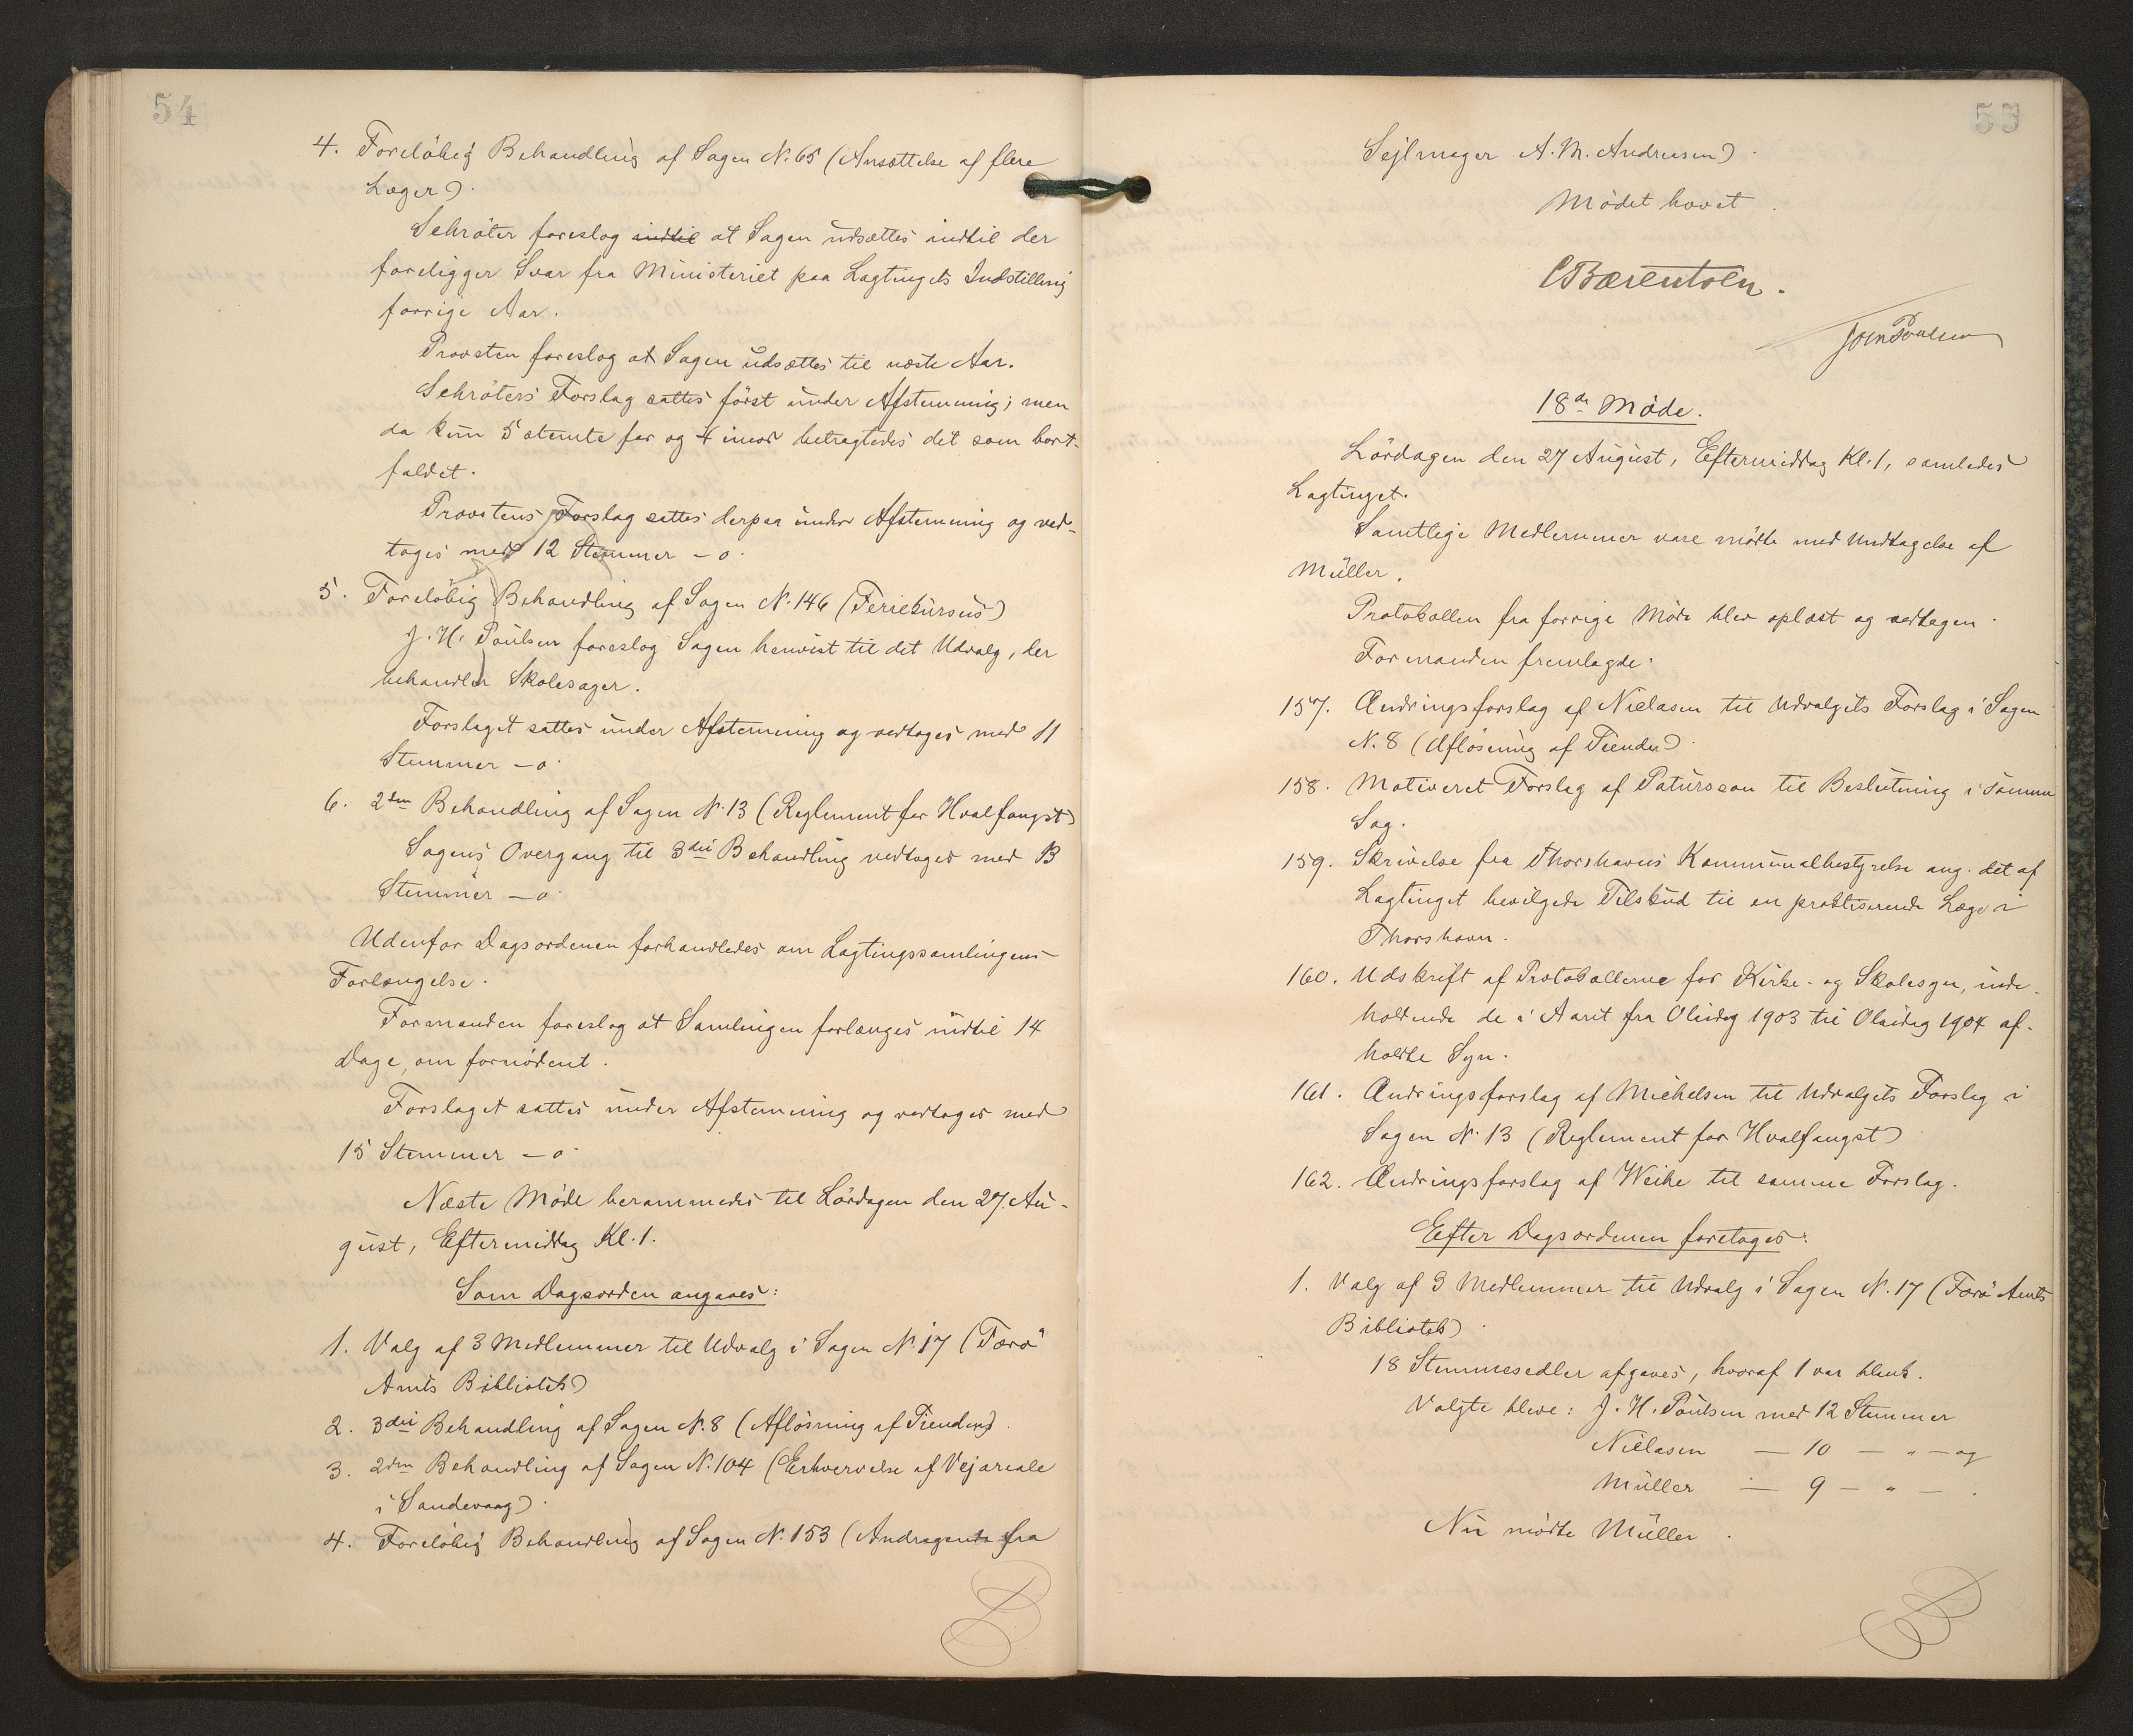 54
4. Foreløbig Behandling af Sagen N. 65 (Ansættelse af flere
Læger).
Schrøter foreslog indtil at Sagen udsættes indtil der
foreligger Svar fra Ministeriet paa Lagtingets Indstilling
forrige Aar.
Provsten foreslog at Sagen udsættes til næste Aar.
Schrøters Forslag sattes først under Afstemning; men
da kun 5 stemte for og 4 imod betragtedes det som bort-
faldet.
Provstens Forslag sattes derpaa under Afstemning og ved-
toges med 12 Stemmer – o.
5. Foreløbig Behandling af Sagen N. 146 (Feriekursus)
J. H. Poulsen foreslog Sagen henvist til det Udvalg, der
behandler Skolesager.
Forslaget sattes under Afstemning og vedtoges med 11
Stemmer – o.
6. 2den Behandling af Sagen N. 13 (Reglement for Hvalfangst)
Sagens Overgang til 3die Behandling vedtoges med 13
Stemmer – o.
Udenfor Dagsordenen forhandledes om Lagtingssamlingens
Forlængelse.
Formanden foreslog at Samlingen forlænges indtil 14
Dage, om fornødent.
Forslaget sattes under Afstemning og vedtoges med
15 Stemmer – o.
Næste Møde berammedes til Lördagen den 27. Au-
gust, Eftermiddag Kl. 1.
Som Dagsorden angaves:
1. Valg af 3 Medlemmer til Udvalg i Sagen N. 17 (Færø
Amts Bibliotek)
2. 3die Behandling af Sagen N. 8 (Afløsning af Tienden).
3. 2den Behandling af Sagen N. 104 (Erhvervelse af Vejareale
i Sandevaag).
4. Foreløbig Behandling af Sagen N. 153 (Andragende fra
55
Sejlmager A. M. Andreasen).
Mødet hævet.
C Bærentsen.
Joen Poulsen
18de Møde.
Lördagen den 27 August, Eftermiddag Kl. 1, samledes
Lagtinget.
Samtlige Medlemmer vare mødte med Undtagelse af
Müller.
Protokollen fra forrige Møde blev oplæst og vedtagen.
Formanden fremlagde:
157. Ændringsforslag af Nielasen til Udvalgets Forslag i Sagen
N. 8 (Afløsning af Tienden).
158. Motiveret Forslag af Patursson til Beslutning i samme
Sag.
159. Skrivelse fra Thorshavns Kommunalbestyrelse ang. det af
Lagtinget bevilgede Tilskud til en praktiserende Læge i
Thorshavn.
160. Udskrift af Protokollerne for Kirke- og Skolesyn, inde-
holdende de i Aaret fra Olaidag 1903 til Olaidag 1904 af-
holdte Syn.
161. Ændringsforslag af Michelsen til Udvalgets Forslag i
Sagen N. 13 (Reglement for Hvalfangst)
162. Ændringsforslag af Weihe til samme Forslag.
Efter Dagsordenen foretoges:
1. Valg af 3 Medlemmer til Udvalg i Sagen N. 17 (Færø Amts
Bibliotek).
18 Stemmesedler afgaves, hvoraf 1 var blank.
Valgte bleve: J. H. Poulsen med 12 Stemmer
Nielasen — 10 — " — og
Müller — 9 — " — .
Nu mødte Müller.